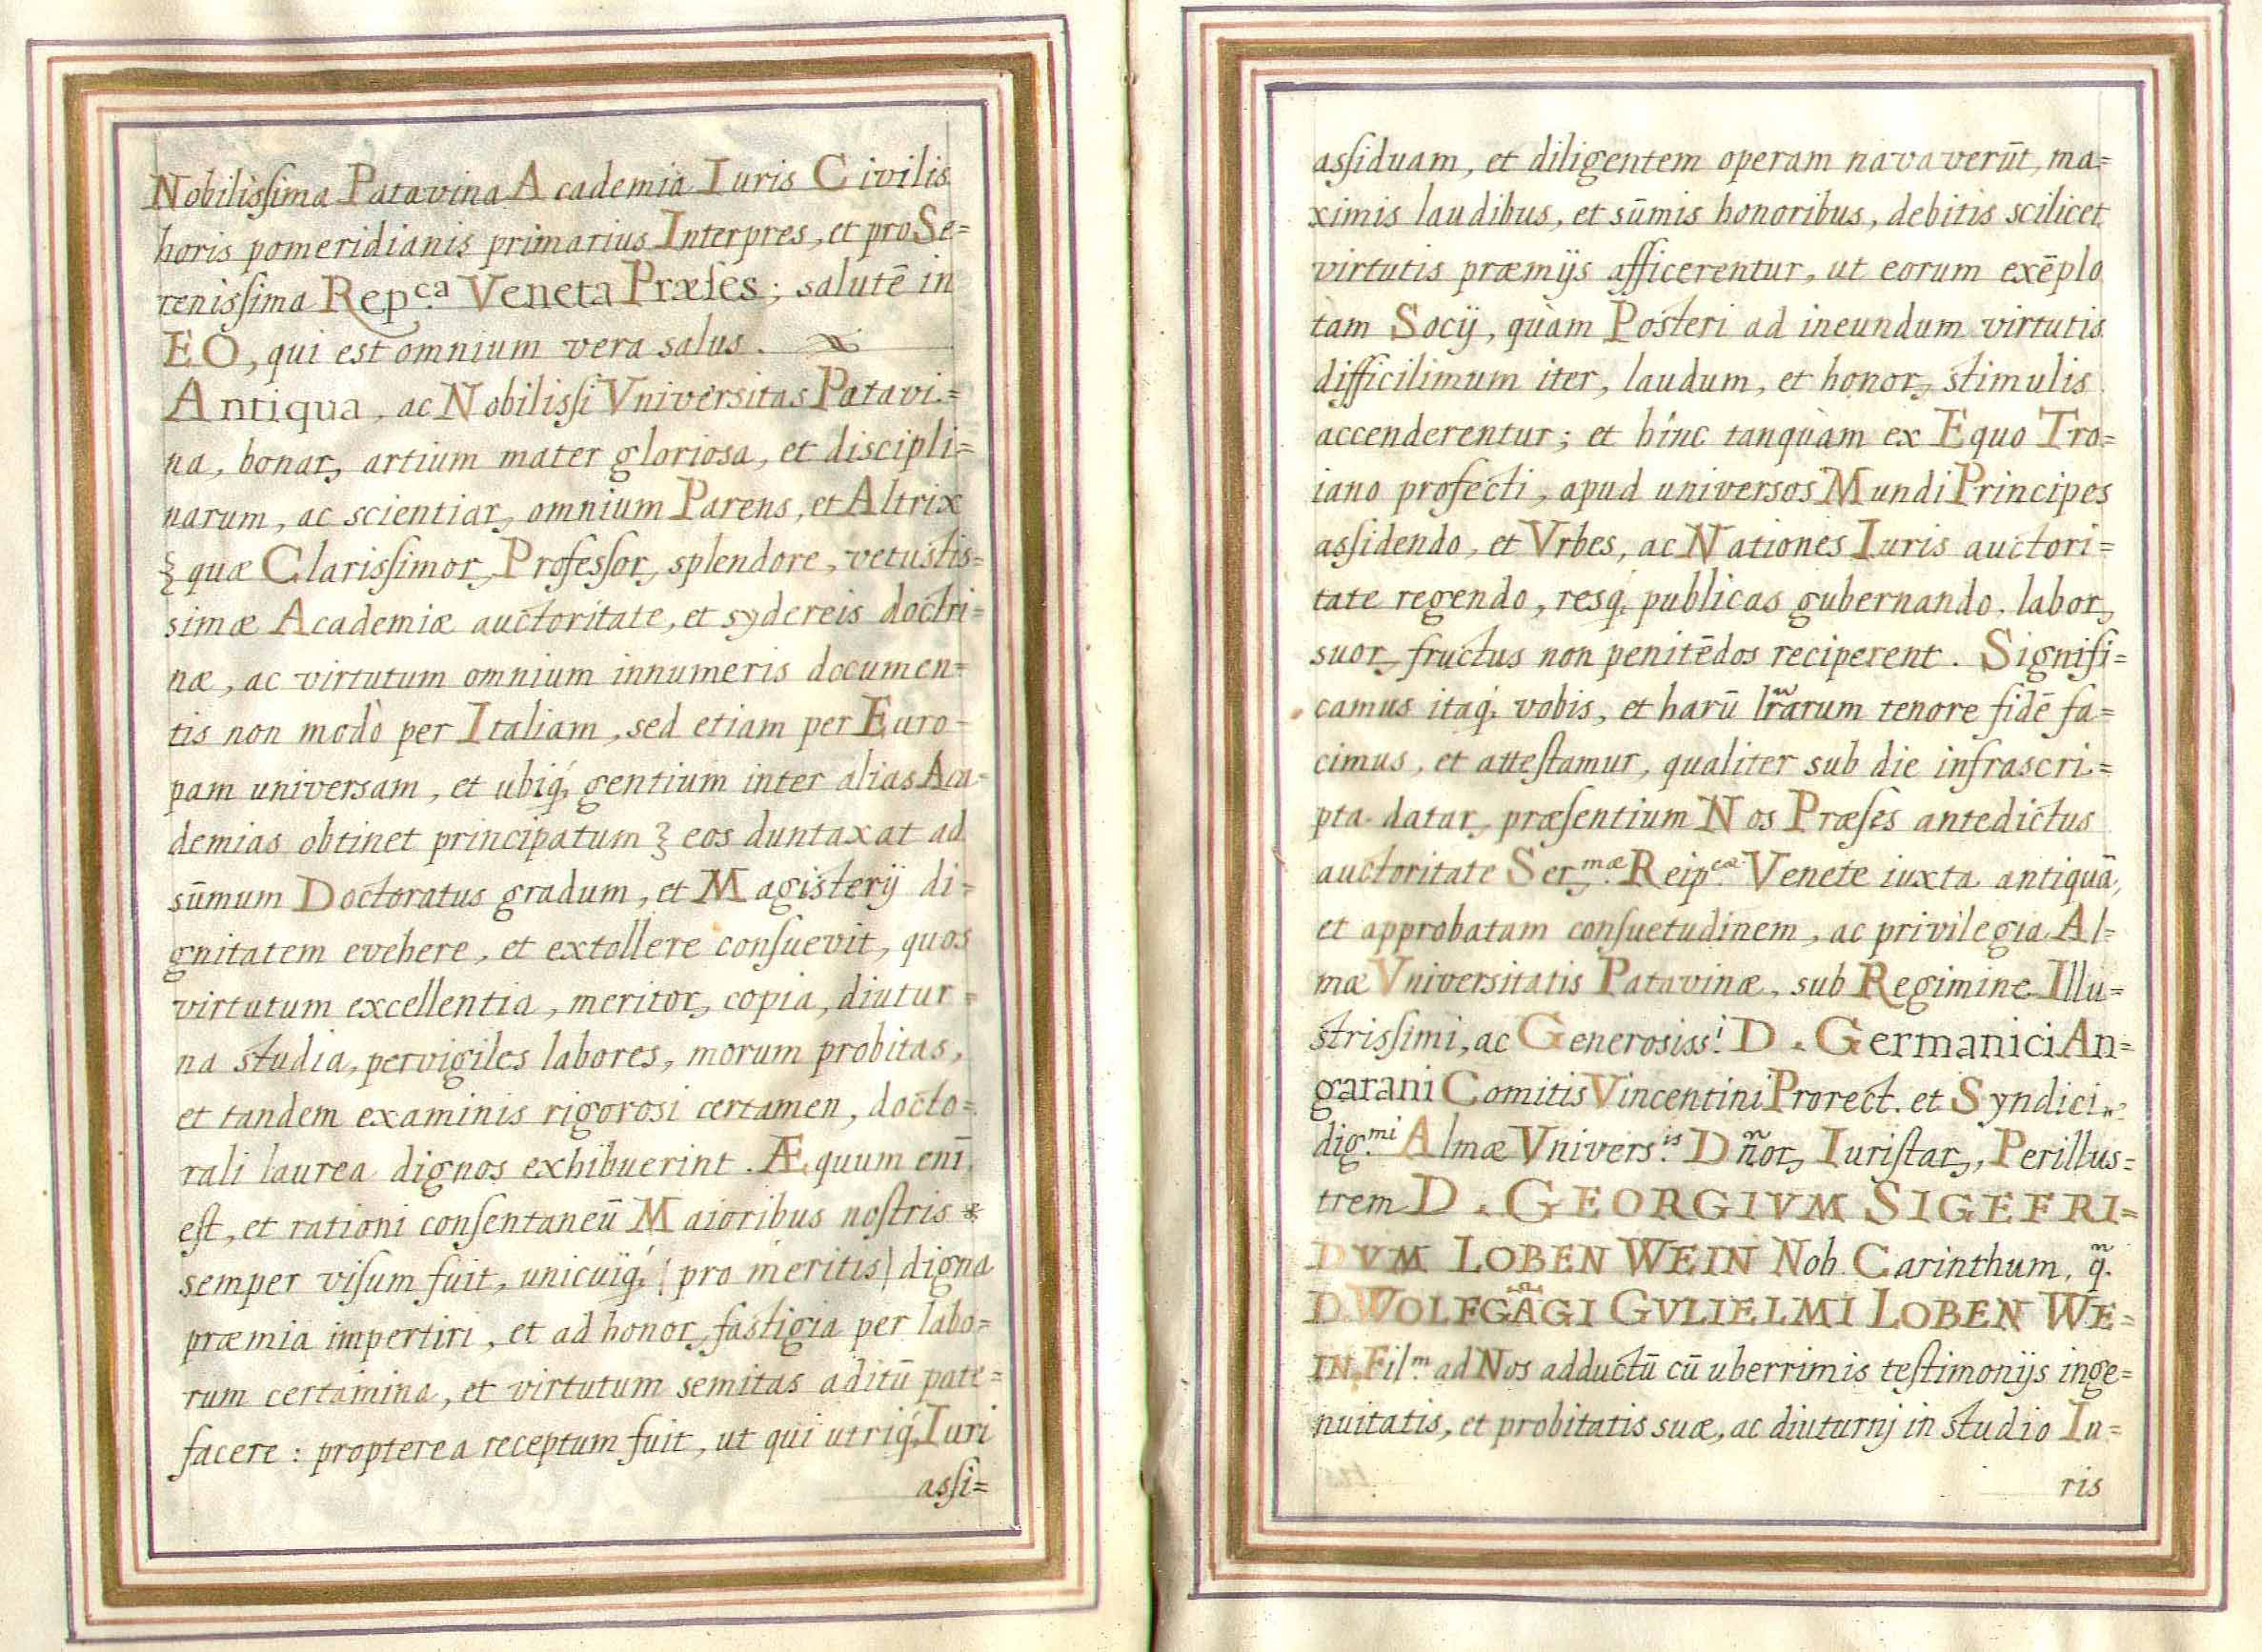 Nobilissima Patavina Academia Iuris Civilis
horis pomeridianis primarius Interpres, et pro Se=
renissima Rep.ca Veneta Præses; salutē in
EO, qui est omnium vera salus.
Antiqua, ac Nobilissi Vniversitas Patavi=
na, bonaꝝ artium mater gloriosa, et discipli=
narum, ac scientiaꝝ omnium Parens, et Altrix
quæ Clarissimoꝝ Professoꝝ splendore, vetustis=
simæ Academiæ auctoritate, et sydereis doctri=
næ, ac virtutum omnium innumeris documen=
tis non modò per Italiam, sed etiam per Euro-
pam universam, et ubiq́; gentium inter alias Aca-
demias obtinet principatum eos duntaxat ad
sūmum Doctoratus gradum, et Magisterij di=
gnitatem evehere, et extollere consuevit, quos
virtutum excellentia, meritoꝝ copia, diutur=
na studia, pervigiles labores, morum probitas,
et tandem examinis rigorosi certamen, docto=
rali laurea dignos exhibuerint. Æquum enī
est, et rationi consentaneū Maioribus nostris
semper visum fuit, unicuiq́; (pro meritis) digna
præmia impertiri, et ad honoꝝ fastigia per labo=
rum certamina, et virtutum semitas aditū pate=
facere: propterea receptum fuit, ut qui utriq́; Iuri
assi=
assiduam, et diligentem operam navaverūt, ma=
ximis laudibus, et sūmis honoribus, debitis scilicet
virtutis præmijs afficerentur, ut eorum exēplo
tam Socij, quàm Posteri ad ineundum virtutis
difficilimum iter, laudum, et honoꝝ stimulis
accenderentur; et hinc tanquàm ex Equo Tro=
iano profecti, apud universos Mundi Principes
assidendo, et Vrbes, ac Nationes Iuris auctori=
tate regendo, resq́; publicas gubernando. laboꝝ
suoꝝ fructus non penitēdos reciperent. Signifi=
camus itaq́; vobis, et harū lr̃arum tenore fidē fa=
cimus, et attestamur, qualiter sub die infrascri=
pta dataꝝ præsentium Nos Præses antedictus
auctoritate Ser.mæ Reip.cæ Venete iuxta antiquā,
et approbatam consuetudinem, ac privilegia Al=
mæ Vniversitatis Patavinæ, sub Regimine Illu=
strissimi, ac Generosiss.i D. Germanici An=
garani Comitis Vincentini Prorect. et Syndici
dig.mi Almæ Vnivers.is Dñoꝝ Iuristaꝝ, Perillus=
trem D. GEORGIVM SIGEFRI=
DVM LOBENWEIN Nob. Carinthum, q̃.
D. WOLFGÃGI GVLIELMI LOBENWE=
IN Fil.m ad Nos adductū cū uberrimis testimonijs inge=
nuitatis, et probitatis suæ, ac diuturnj in studio Iu=
ris